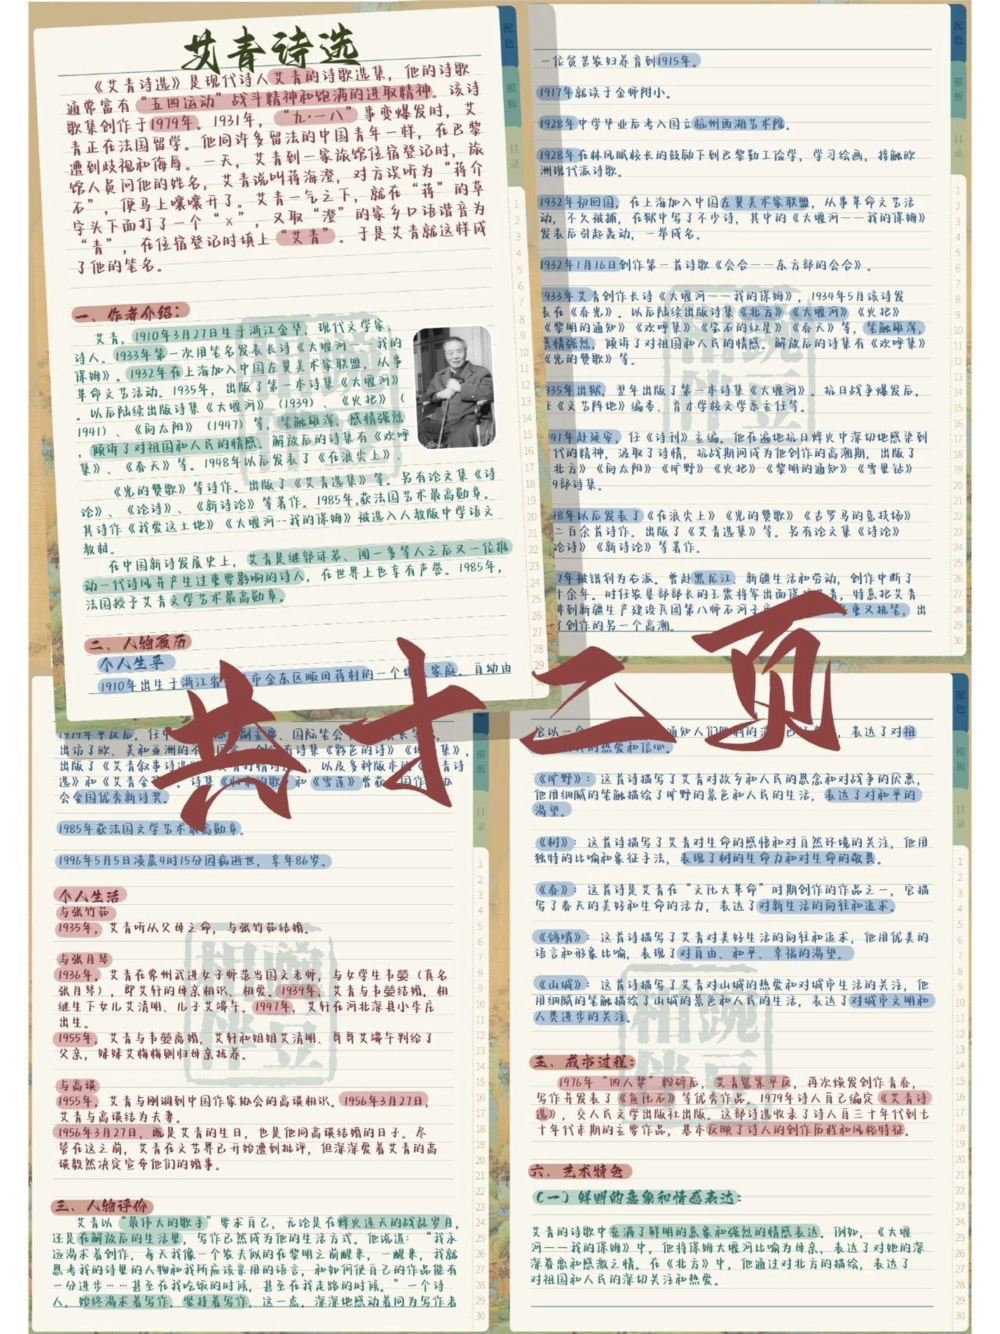 艾青诗选
《艾青诗选》是现代诗人艾青的诗歌选集，他的诗歌
通常富有“五四运动”战斗精神和饱满的进取精神。该诗
歌集创作于1979年。1931年，“九·一八”事变爆发时，艾
青正在法国留学。他同许多留法的中国青年一样，在巴黎
遭到歧视和侮辱。一天，艾青到一家旅馆住宿登记时，旅
馆人员问他的姓名，艾青说叫蒋海澄，对方误听为“蒋介
石”，便马上嚷嚷开了。艾青一气之下，就在“蒋”的草
字头下面打了一个“×”，又取“澄”的家乡口语谐音为
“青”，在住宿登记时填上“艾青”。于是艾青就这样成
了他的笔名。
一、作者介绍：
艾青，1910年3月27日生于浙江金华，现代文学家、
诗人。1933年第一次用笔名发表长诗《大堰河——我的
保姆》。1932年在上海加入中国左翼美术家联盟，从事
革命文艺活动。1935年，出版了第一本诗集《大堰河》
。以后陆续出版诗集《大堰河》（1939）、《火把》（
1941）、《向太阳》（1947）等，笔触雄浑，感情强烈
，倾诉了对祖国和人民的情感。解放后的诗集有《欢呼
集》、《春天》等。1948年以后发表了《在浪尖上》、
《光的赞歌》等诗作。出版了《艾青选集》等。另有论文集《诗
论》、《论诗》、《新诗论》等著作。1985年,获法国艺术最高勋章。
其诗作《我爱这土地》《大堰河--我的保姆》被选入人教版中学语文
教材。
在中国新诗发展史上，艾青是继郭沫若、闻一多等人之后又一位推
动一代诗风并产生过重要影响的诗人，在世界上也享有声誉。1985年，
法国授予艾青文学艺术最高勋章。
二、人物履历
个人生平
1910年出生于浙江省 市金东区畈田蒋村的一个 家庭。自幼由
一位贫苦农妇养育到1915年。
1917年就读于金师附小。
1928年中学毕业后考入国立杭州西湖艺术院。
1928年在林风眠校长的鼓励下到巴黎勤工俭学，学习绘画，接触欧
洲现代派诗歌。
1932年初回国，在上海加入中国左翼美术家联盟，从事革命文艺活
动，不久被捕，在狱中写了不少诗，其中的《大堰河——我的保姆》
发表后引起轰动，一举成名。
1932年1月16日创作第一首诗歌《会合——东方部的会合》。
933年艾青创作长诗《大堰河——我的保姆》，1934年5月该诗发
表在《春光》。以后陆续出版诗集《北方》《大堰河》《火把》
《黎明的通知》《欢呼集》《宝石的红星》《春天》等，笔触雄浑，
感情强烈，倾诉了对祖国和人民的情感。解放后的诗集有《欢呼集》
《光的赞歌》等。
935年出狱，翌年出版了第一本诗集《大堰河》。抗日战争爆发后，
《文艺阵地》编委、育才学校文学系主任等。
41年赴延安，任《诗刊》主编。他在遍地抗日烽火中深切地感染到
代的精神，汲取了诗情，抗战期间成为他创作的高潮期，出版了
《北方》《向太阳》《旷野》《火把》《黎明的通知》《雪里钻》
9部诗集。
48年以后发表了《在浪尖上》《光的赞歌》《古罗马的竞技场》
二百余首诗作。出版了《艾青选集》等。另有论文集《诗论》
论诗》《新诗论》等著作。
7年被错划为右派。曾赴黑龙江、新疆生活和劳动，创作中断了
十余年。时任农垦部部长的王震将军出面 艾青，特意把艾青
到新疆生产建设兵团第八师石河子 重又执笔，出
了创作的另一个高潮。
共十二页
1979年平反后，任中 副主席、国际笔会
出访了欧、美和亚洲的不 有诗集《彩色的诗》
出版了《艾青叙事诗选》 ，以及多种版本
选》和《艾青全 。诗集《归来的歌》和《雪莲》曾获 国作 协
会全国优秀新诗奖。
1985年获法国文学艺术最高勋章。
1996年5月5日凌晨4时15分因病逝世，享年86岁。
个人生活
与张竹茹
1935年，艾青听从父母之命，与张竹茹结婚。
与张月琴
1936年，艾青在常州武进女子师范当国文老师，与女学生韦嫈（真名
张月琴），即艾轩的母亲相识、相爱。1939年，艾青与韦嫈结婚，相
继生下女儿艾清明、儿子艾端午。1947年，艾轩在河北深县小李庄
出生。
1955年，艾青与韦嫈离婚，艾轩和姐姐艾清明、哥哥艾端午判给了
父亲，妹妹艾梅梅则归母亲抚养。
与高瑛
1955年，艾青与刚调到中国作家协会的高瑛相识。1956年3月27日，
艾青与高瑛结为夫妻。
1956年3月27日，既是艾青的生日，也是他同高瑛结婚的日子。尽
管在这之前，艾青在文艺界已开始遭到批评，但深深爱着艾青的高
瑛毅然决定宣布他们的婚事。
三、人物评价
艾青以“最伟大的歌手”要求自己，无论是在烽火连天的战乱岁月，
还是在解放后的生活里，写作已然成为他的生活方式。他说道：“我永
远渴求着创作，每天我像一个农夫似的在黎明之前醒来，一醒来，我就
思考我的诗里的人物和我所应该采用的语言，和如何使自己的作品能有
一分进步……甚至在我吃饭的时候，甚至在我走路的时候。”一个诗
人，始终渴求着写作，坚持着写作，这一点，深深地感动着同为写作者
它以一 通知人们 表达了对祖
的热爱和信心。
《旷野》：这首诗描写了艾青对故乡和人民的思念和对战争的厌恶，
他用细腻的笔触描绘了旷野的景色和人民的生活，表达了对和平的
渴望。
《树》：这首诗描写了艾青对生命的感悟和对自然环境的关注，他用
独特的比喻和象征手法，表现了树的生命力和对生命的敬畏。
《春》：这首诗是艾青在“文化大革命”时期创作的作品之一，它描
写了春天的美好和生命的活力，表达了对新生活的向往和追求。
《鸽哨》：这首诗描写了艾青对美好生活的向往和追求，他用优美的
语言和形象比喻，表现了对自由、和平、幸福的渴望。
《山城》：这首诗描写了艾青对山城的热爱和对城市生活的关注，他
用细腻的笔触描绘了山城的景色和人民的生活，表达了对城市文明和
人类进步的关注。
五、成书过程：
1976年“四人帮”粉碎后，艾青冤案平反，再次焕发创作青春，
写作并发表了《鱼化石》等优秀作品。1979年诗人自己编定《艾青诗
选》，交人民文学出版社出版。这部诗选收录了诗人自三十年代到七
十年代末期的主要作品，基本反映了诗人的创作历程和风格特征。
六、艺术特色
（一）鲜明的意象和情感表达：
艾青的诗歌中充满了鲜明的意象和强烈的情感表达。例如，《大堰
河——我的保姆》中，他将保姆大堰河比喻为母亲，表达了对她的深
深眷恋和感激之情。在《北方》中，他通过对北方的描绘，表达了
对祖国和人民的深切关注和热爱。